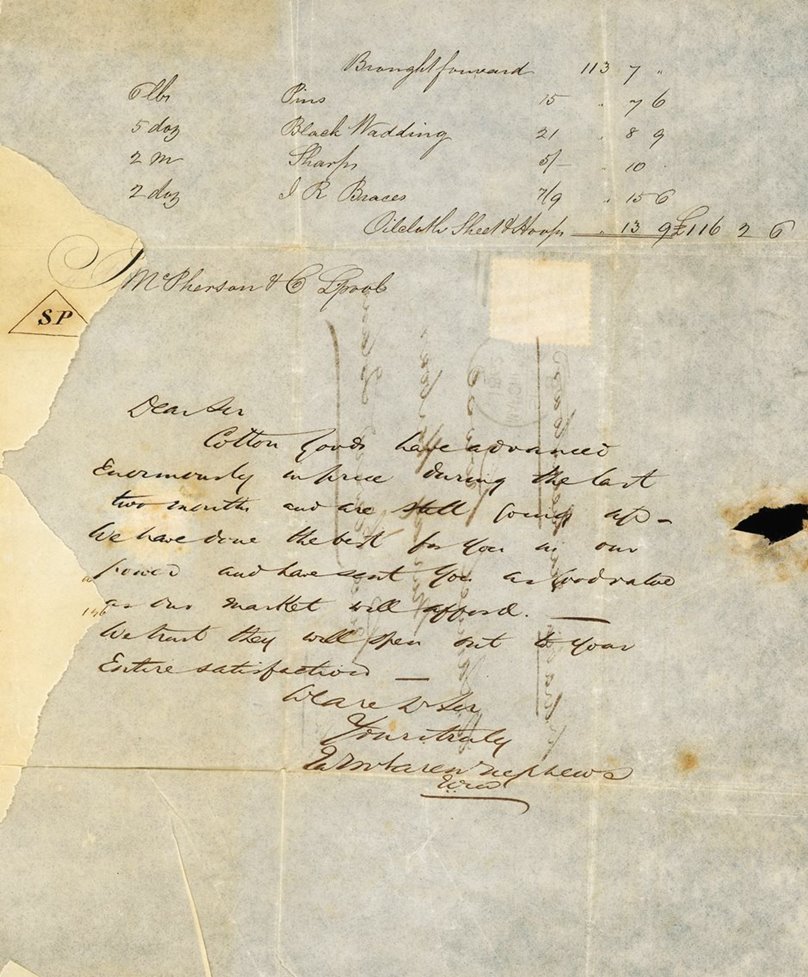 Brought forward 113 7 "
6 lbs Pins 15 " 7 6
5 doz Black Wadding 21 " 8 9
2 m Sharps 5/- " 10
2 doz I R Braces 7/9 " 15 6
Oilcloth Sheet & Hoops " 13 9 £116 2 6
McPherson & C Lpool
SP
Dear Sir
Cotton Goods have advanced
Enormously in price during the last
two months and are still going up –
We have done the best for you in our
power and have sent you as good value
as our market will afford. —
We trust they will open out to your
Entire satisfaction —
We are D Sir
Yours truly
Ewing